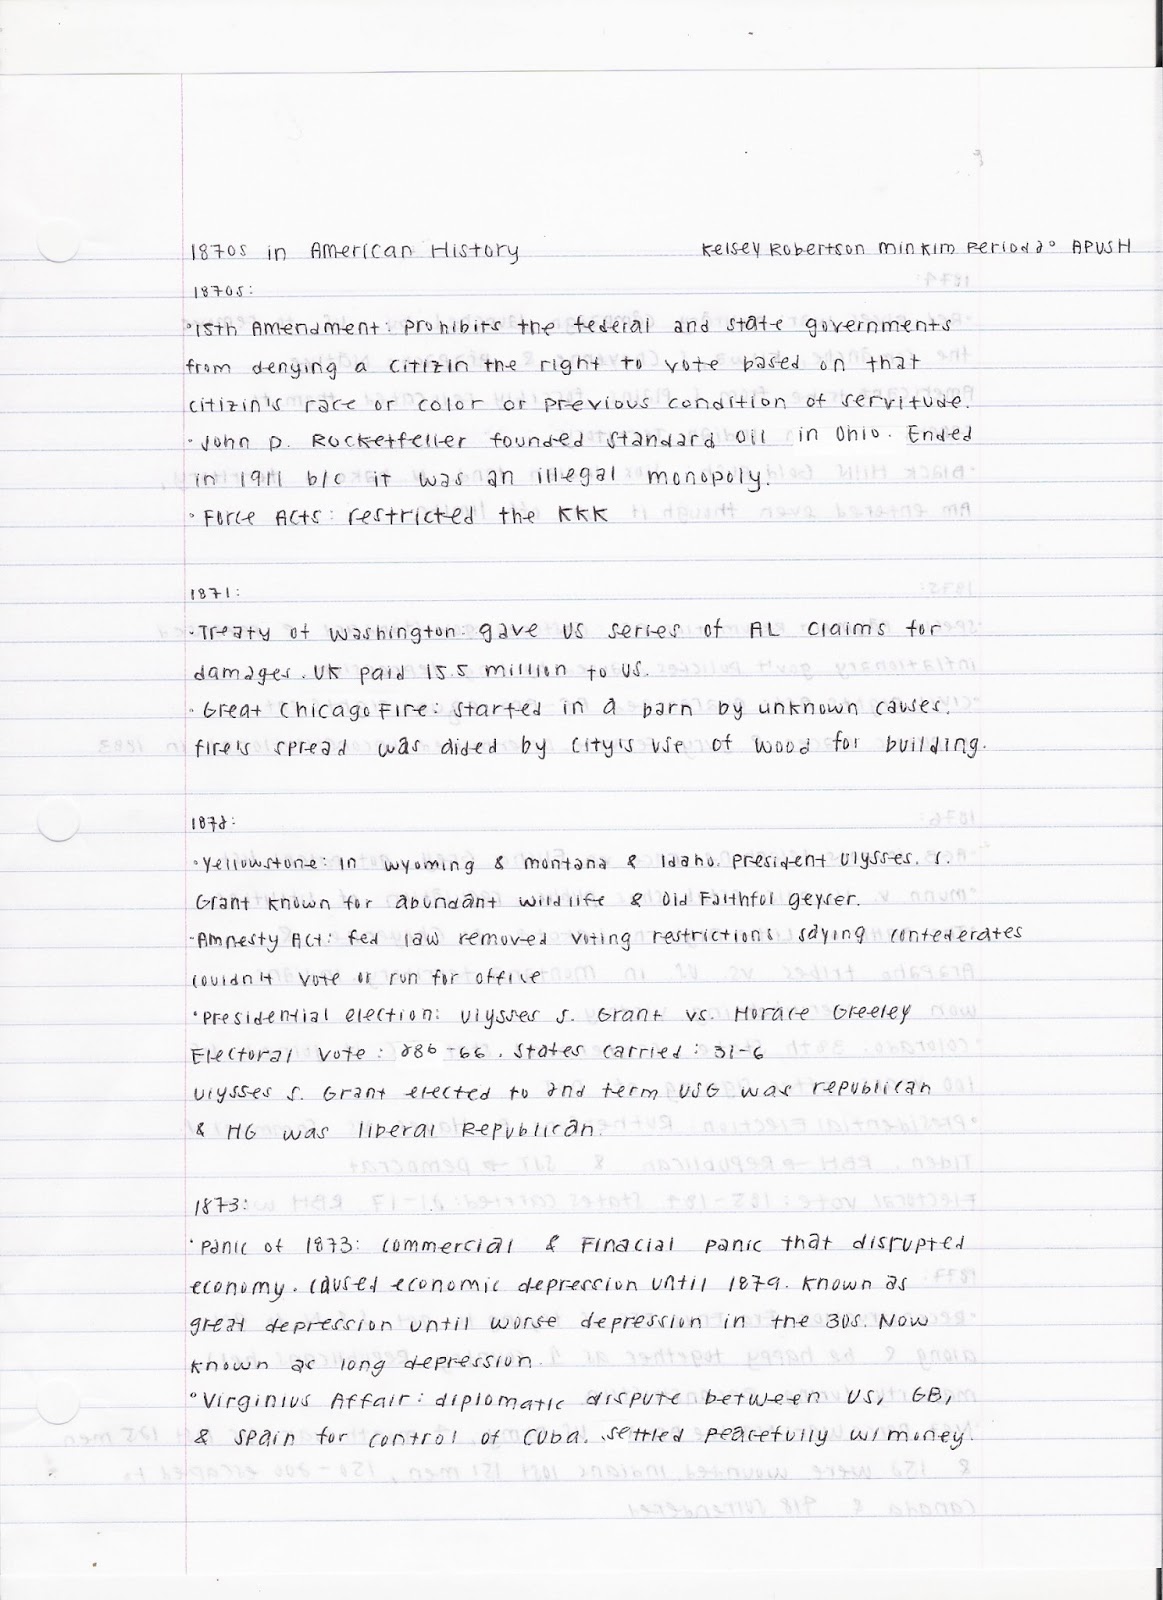 1870s in American History Kelsey Robertson Min Kim Period 2° APUSH
1870s:
·15th Amendment: prohibits the federal and state governments
from denying a citizin the right to vote based on that
citizin's race or color or previous condition of servitude.
·John D. Rockerfeller founded Standard Oil in Ohio. Ended
in 1911 b/c it was an illegal monopoly.
·Force Acts: restricted the KKK
1871:
·Treaty of Washington: gave US series of AL claims for
damages. UK paid 15.5 million to US.
·Great Chicago Fire: started in a barn by unknown causes.
fire's spread was aided by city's use of wood for building.
1872:
·Yellowstone: in Wyoming & Montana & Idaho. President Ulysses. S.
Grant known for abundant wildlife & Old Faithful geyser.
·Amnesty Act: fed law removed voting restrictions saying confederates
couldn't vote or run for office
·Presidential election: Ulysses S. Grant vs. Horace Greeley
Electoral vote: 286-66. States carried: 31-6
Ulysses S. Grant elected to 2nd term USG was republican
& HG was liberal Republican.
1873:
·Panic of 1873: commercial & finacial panic that disrupted
economy. Caused economic depression until 1879. Known as
great depression until worse depression in the 30s. Now
known as long depression.
·Virginius Affair: diplomatic dispute between US, GB,
& Spain for control of Cuba. settled peacefully w/ money.